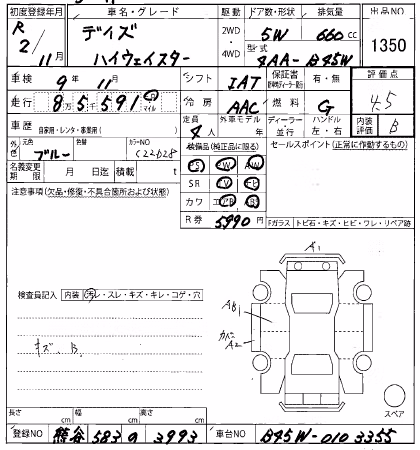 初度登録年月 車名・グレード 駆動 ドア数・形状 排気量 出品NO
R 2/11月 デイズ ハイウェイスター 2WD・4WD 5W 660cc 1350
型式 4AA-B45W
車検 9年11月 シフト IAT 保証書 有・無 評価点
走行 8万5千591 km マイル 冷房 AAC 燃料 G 4.5
車歴 自家用・レンタ・事業用( ) 定員 4人 外車モデル 年 ディーラー 並行 ハンドル 左・右 内装評価 B
外色 元色 ブルー 色替 カラーNO C22D28 装備品(純正品に限る) セールスポイント(正常に作動するもの)
名義変更期限 月 日迄 積載 t PS PW AW
注意事項(欠品・修復・不具合箇所および状態) SR ナビ テレビ
カワ エアB ABS
R券 5990円 Fガラス トビ石・キズ・ヒビ・ワレ・リペア跡
A1
検査員記入 内装 汚レ・スレ・キズ・キレ・コゲ・穴
AB1
カバン A2
キズ、B
スペア
長さ cm 幅 cm 高さ cm
登録NO 熊谷 583 の 3993 車台NO B45W-0103355